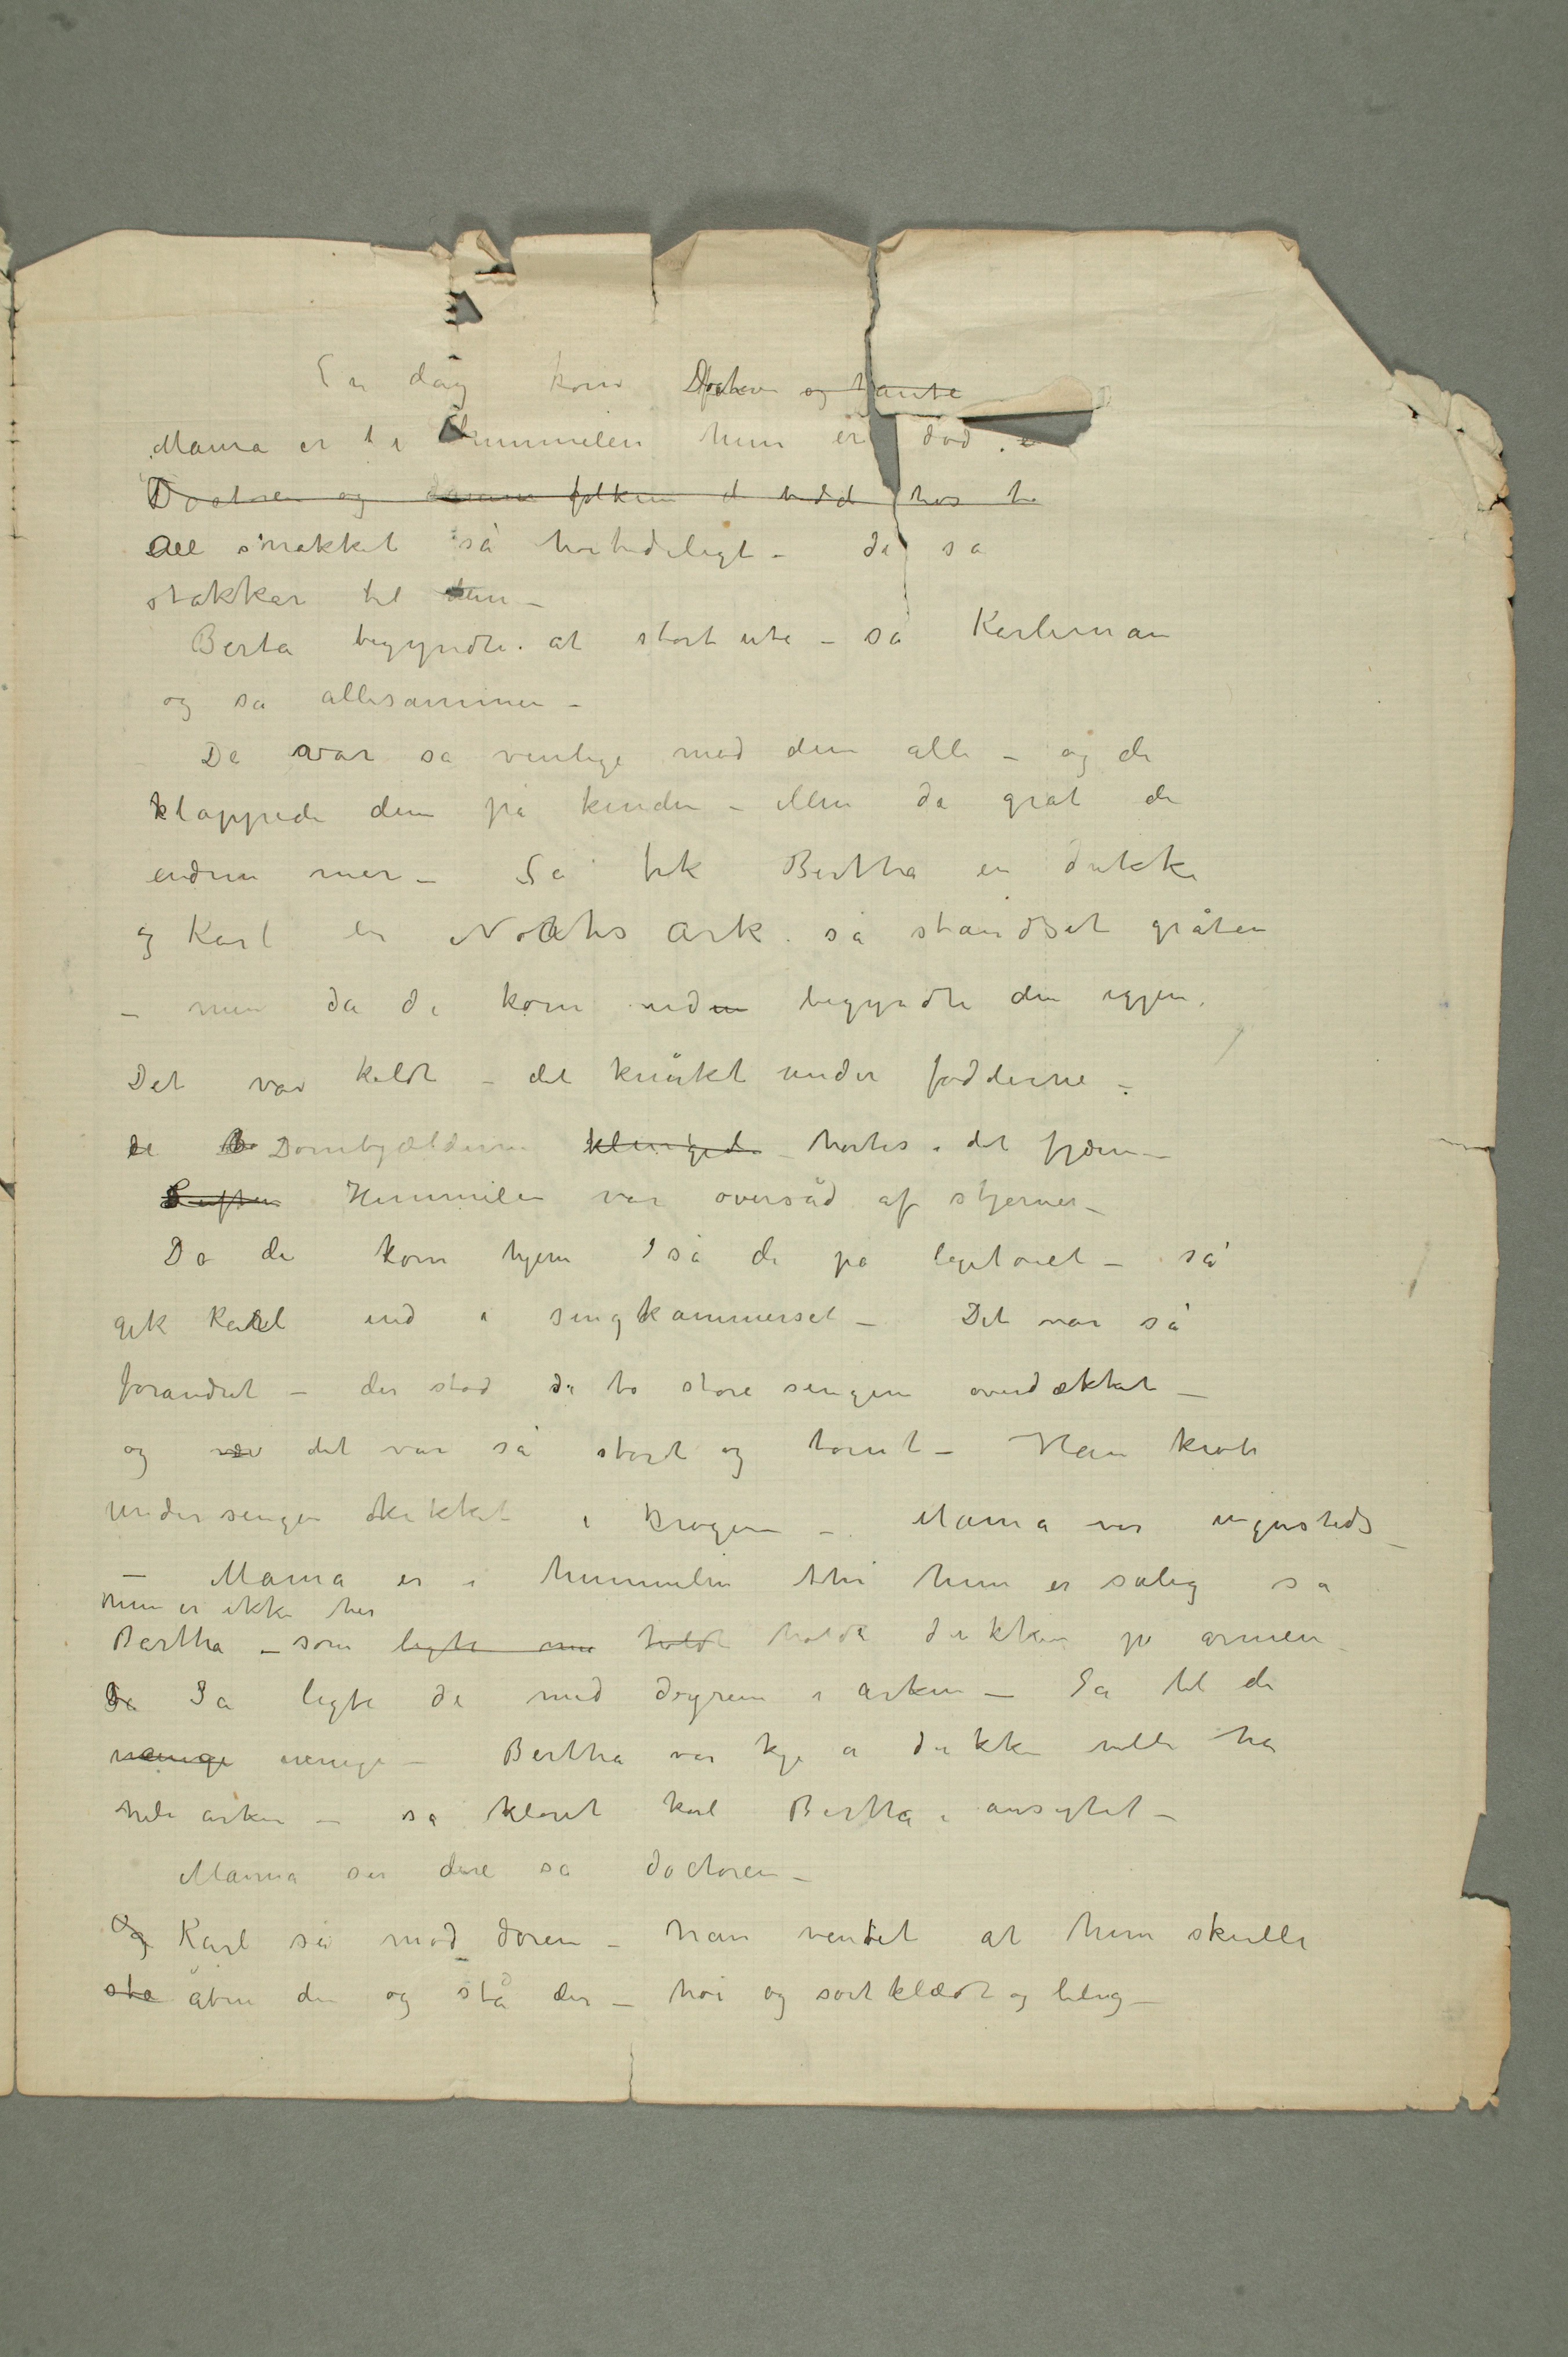 En dag kom Doctoren og tante
Mama er i Himmelen hun er død.
Doctoren og folkene de bodde hos
All snakket så høitideligt – de sa
stakkar til dem –
Berta begyndte at stortute – så Karleman
og så allesammen –
De var så venlige mod dem alle – og de
klappede dem på kinden – Men da gråt de
endnu mer – Så fik Bertha en dukke
og Karl en Noahs Ark. så standset gråten
– men da de kom ud begyndte den igjen.
Det var koldt – det knirket under fødderne –
de Dombjælderne klingede hørtes i det fjærne –
Luften Himmelen var oversåd af stjerner –
Da de kom hjem så de på legetøiet – så
gik Karl ind i sengkammerset – Det var så
forandret – der stod de to store sengene overdækket –
og var det var så stort og tomt – Han krøb
under sengen kikket i krogene – Mama var ingensteds –
– Mama er i himmelen thi hun er salig sa
hun er ikke her
Bertha – som legte med holdt holdt dukken på armen –
Da Så legte de med dyrene i arken – Så blev de
uenige uenige – Bertha var kjed af dukken ville ha
hele arken – så kloret Karl Bertha i ansigtet –
Mama ser dere sa doctoren –
Og Karl så mod døren – han ventet at hun skulle
sta åbne den og stå der – høi og sortklædt og bleg –